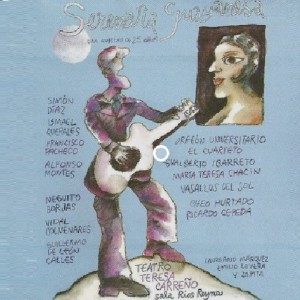 SIMÓN
DÍAZ
ISMAEL
QUERALES
FRANCISCO
PACHECO
ALFONSO
MONTES
NEGUITO
BORJAS
VIDAL
COLMENARES
GUILLERMO
DE LEÓN
CALLES
ORFEÓN UNIVERSITARIO
EL CUARTETO
GUALBERTO IBARRETO
MARÍA TERESA CHACÍN
VASALLOS DEL SOL
CHEO HURTADO
RICARDO CEPEDA
LAUREANO MÁRQUEZ
EMILIO LOVERA
TEATRO
TERESA
CARREÑO
Sala Ríos Reyna